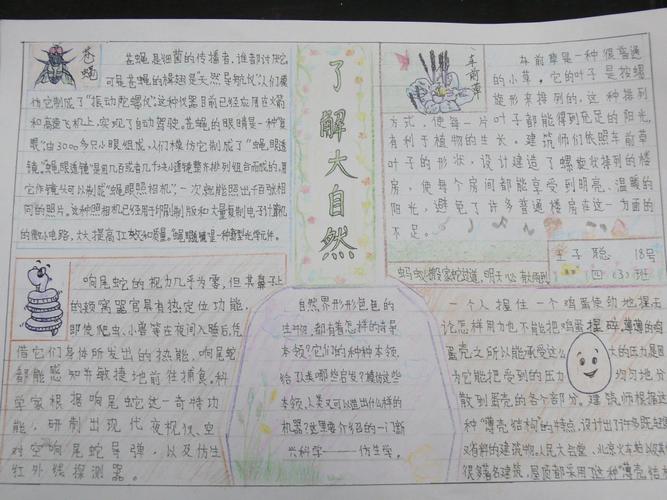 苍蝇
苍蝇是细菌的传播者,谁都讨厌它
可是苍蝇的楫翅是"天然导航仪"人们模
仿它制成了"振动陀螺仪"这种仪器目前已经应用在火箭
和高速飞机上,实现了自动驾驶。苍蝇的眼睛是一种复
眼"由3000多只小眼组成,人们模仿它制成了"蝇眼透
镜"。"蝇眼透镜"是用几百或者几千块小透镜整齐排列组合而成的,用
它作镜头可以制成"蝇眼照相机",一次就能照出千百张相
同的照片。这种照相机已经用于印刷制版和大量复制电子计算机
的微小电路,大大提高了工效和质量。"蝇眼透镜"是一种新型光学元件。
了解大自然
车前草
车前草是一种很普通
的小草,它的叶子是按螺
旋形来排列的,这种排列
方式,使每一片叶子都能得到充足的阳光,
有利于植物的生长。建筑师们依照车前草
叶子的形状,设计建造了螺旋状排列的楼
房,使每个房间都能享受到明亮、温暖的
阳光,避免了许多普通楼房在这一方面的
不足。
王子聪 18号
四(3)班
蚂蚁搬家蛇过道,明天必有大雨到
响尾蛇的视力几乎为零,但其鼻子上
的颊窝器官具有热定位功能,
即使爬虫、小兽等在夜间入睡后,凭
借它们身体所发出的热能,响尾蛇
都能感知并敏捷地前往捕食。科
学家根据响尾蛇这一奇特功
能,研制出现代夜视仪、空
对空响尾蛇导弹,以及仿生
红外线探测器。
自然界形形色色的
生物,都有着怎样的奇异
本领?它们的种种本领,
给了人类哪些启发?模仿这些
本领,人类又可以造出什么样的
机器?这里要介绍的一门新
兴科学——仿生学。
一个人握住一个鸡蛋使劲地捏,无
论怎样用力也不能把鸡蛋捏碎。薄薄的鸡
蛋壳之所以能承受这么大的压力是因
为它能把受到的压力均匀地分
散到蛋壳的各个部分。建筑师根据这
种"薄壳结构"的特点,设计出了许多既轻便
又省料的建筑物。人民大会堂,北京火车站以及其他
很多著名建筑,屋顶都采用了这种"薄壳"结构